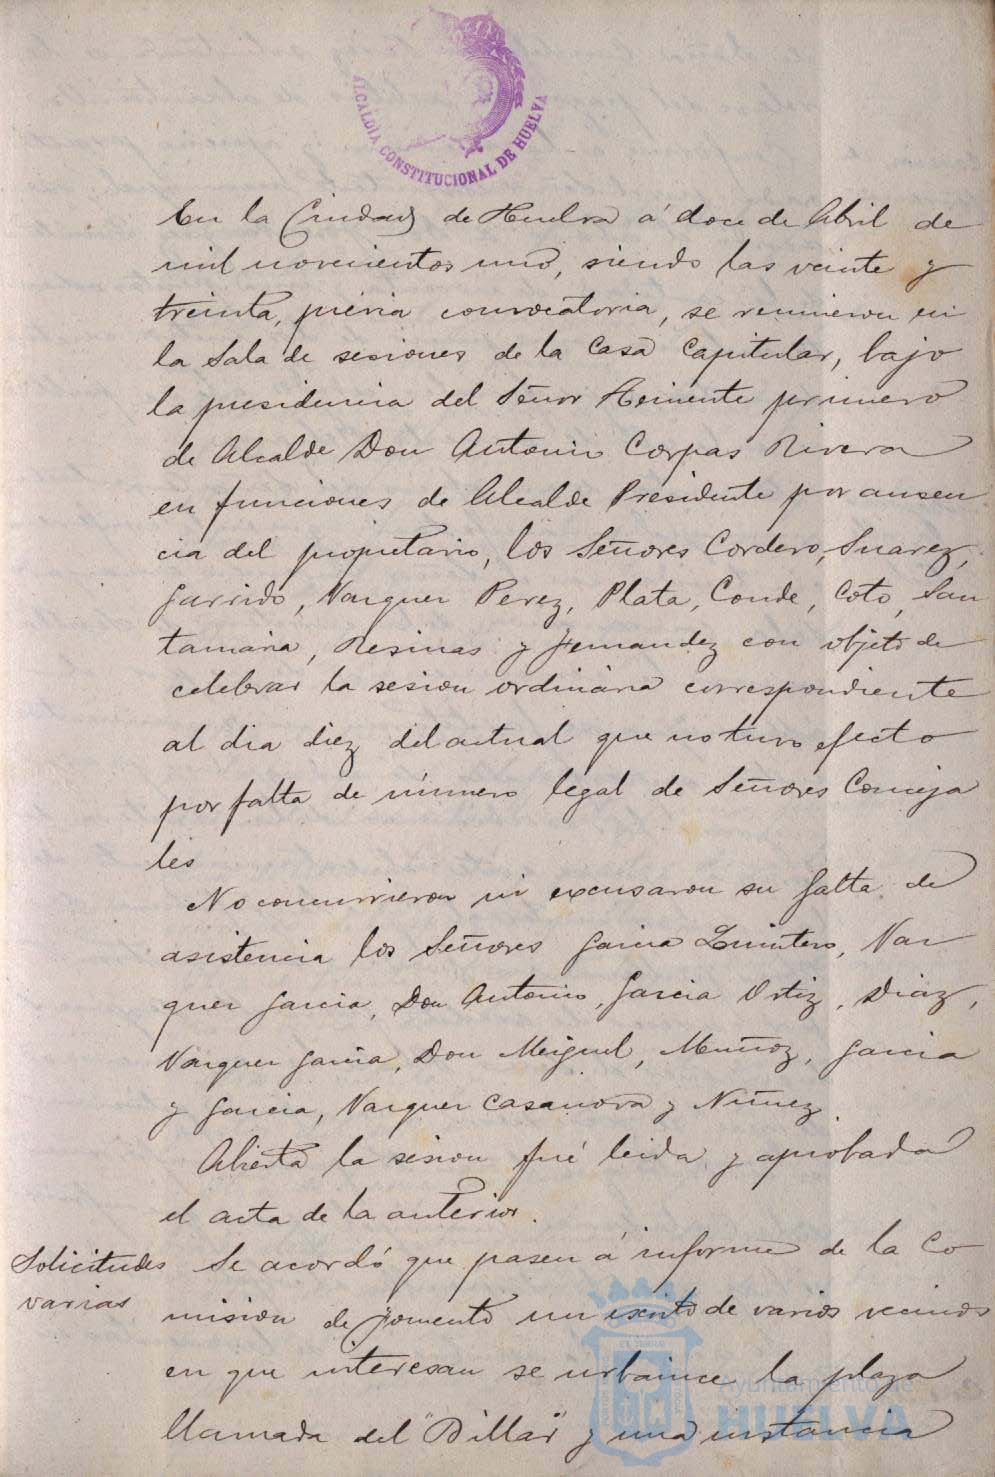 ALCALDIA CONSTITUCIONAL DE HUELVA
En la Ciudad de Huelva á doce de Abril de
mil novecientos uno, siendo las veinte y
treinta, prévia convocatoria, se reunieron en
la Sala de sesiones de la Casa Capitular, bajo
la presidencia del Señor Teniente primero
de Alcalde Don Antonio Corpas Rivera
en funciones de Alcalde Presidente por ausen
cia del propietario, los Señores Cordero, Suarez,
Garrido, Vazquez Perez, Plata, Conde, Coto, San
tamaria, Resinas y Fernandez con objeto de
celebrar la sesion ordinaria correspondiente
al dia diez del actual que no tuvo efecto
por falta de número legal de Señores Conceja
les
No concurrieron ni excusaron su falta de
asistencia los Señores Garcia Quintero, Vaz
quez Garcia, Don Antonio, Garcia Ortiz, Diaz,
Vazquez Garcia, Don Miguel, Muñoz, Garcia
y Garcia, Vazquez Casanova y Nuñez.
Abierta la sesion fué leida y aprobada
el acta de la anterior.
Solicitudes varias
Se acordó que pasen á informe de la Co
mision de Fomento un escrito de varios vecinos
en que interesan se urbanice la plaza
llamada del "Billar" y una instancia
Ayuntamiento de
HUELVA